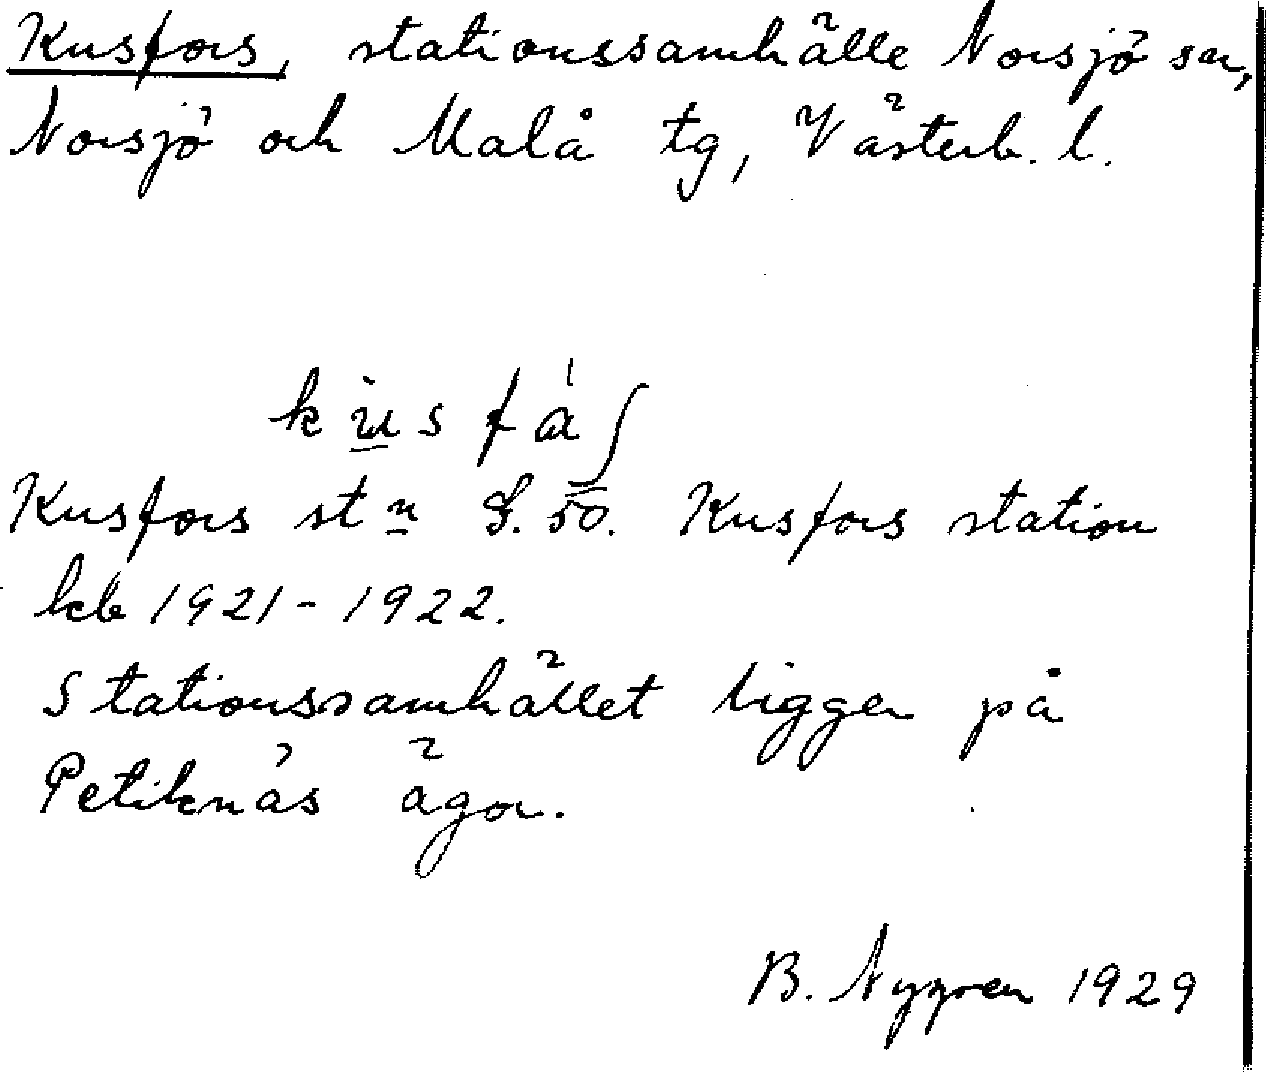 Kusfors, stationssamhälle Norsjö sn,
Norsjö och Malå tg, Västerb. l.
Kusfors stn S. 50. Kusfors station
kb 1921-1922.
Stationssamhället ligger på
Petiknäs ägor.
B. Nygren 1929